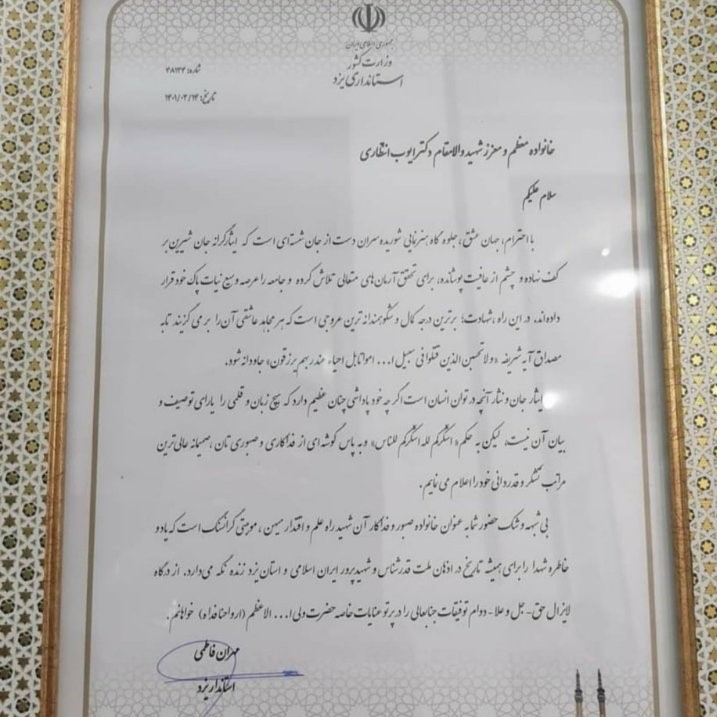 جمهوری اسلامی ایران
وزارت کشور
استانداری یزد
شماره: ۳۸۱۳۳
تاریخ: ۱۴۰۱/۰۳/۱۴
خانواده معظم و معزز شهید والامقام دکتر ایوب انتظاری
سلام علیکم
با احترام، جهان عشق، جلوه گاه هنرنمایی شوریده سران دست از جان شسته‌ای است که ایثارگرانه جان شیرین بر
کف نهاده و چشم از عافیت پوشانده، برای تحقق آرمان‌های متعالی تلاش کرده و جامعه را عرصه وسیع نیات پاک خود قرار
داده‌اند. در این راه، شهادت؛ برترین درجه کمال و شکوهمندانه ترین عروجی است که هر مجاهد عاشقی آن را بر می گزیند تا به
مصداق آیه شریفه «ولا تحسبن الذین قتلوا فی سبیل ا... امواتا بل احیاء عند ربهم یرزقون» جاودانه شود.
ایثار جان و نثار آنچه در توان انسان است اگر چه خود پاداشی چنان عظیم دارد که هیچ زبان و قلمی را یارای توصیف و
بیان آن نیست، لیکن به حکم «اشکرکم لله اشکرکم للناس» و به پاس گوشه ای از فداکاری و صبوری تان، صمیمانه عالی ترین
مراتب تشکر و قدردانی خود را اعلام می نمایم.
بی شبهه و شک حضور شما به عنوان خانواده صبور و فداکار آن شهید راه علم و اقتدار میهن، موهبتی گرانسنگ است که یاد و
خاطره شهدا را برای همیشه تاریخ در اذهان ملت قدرشناس و شهیدپرور ایران اسلامی و استان یزد زنده نگه می دارد. از درگاه
لایزال حق - جل و علا - دوام توفیقات جنابعالی را در پرتو عنایات خاصه حضرت ولی ا... الاعظم (ارواحنا فداه) خواهانم.
مهران فاطمی
استاندار یزد